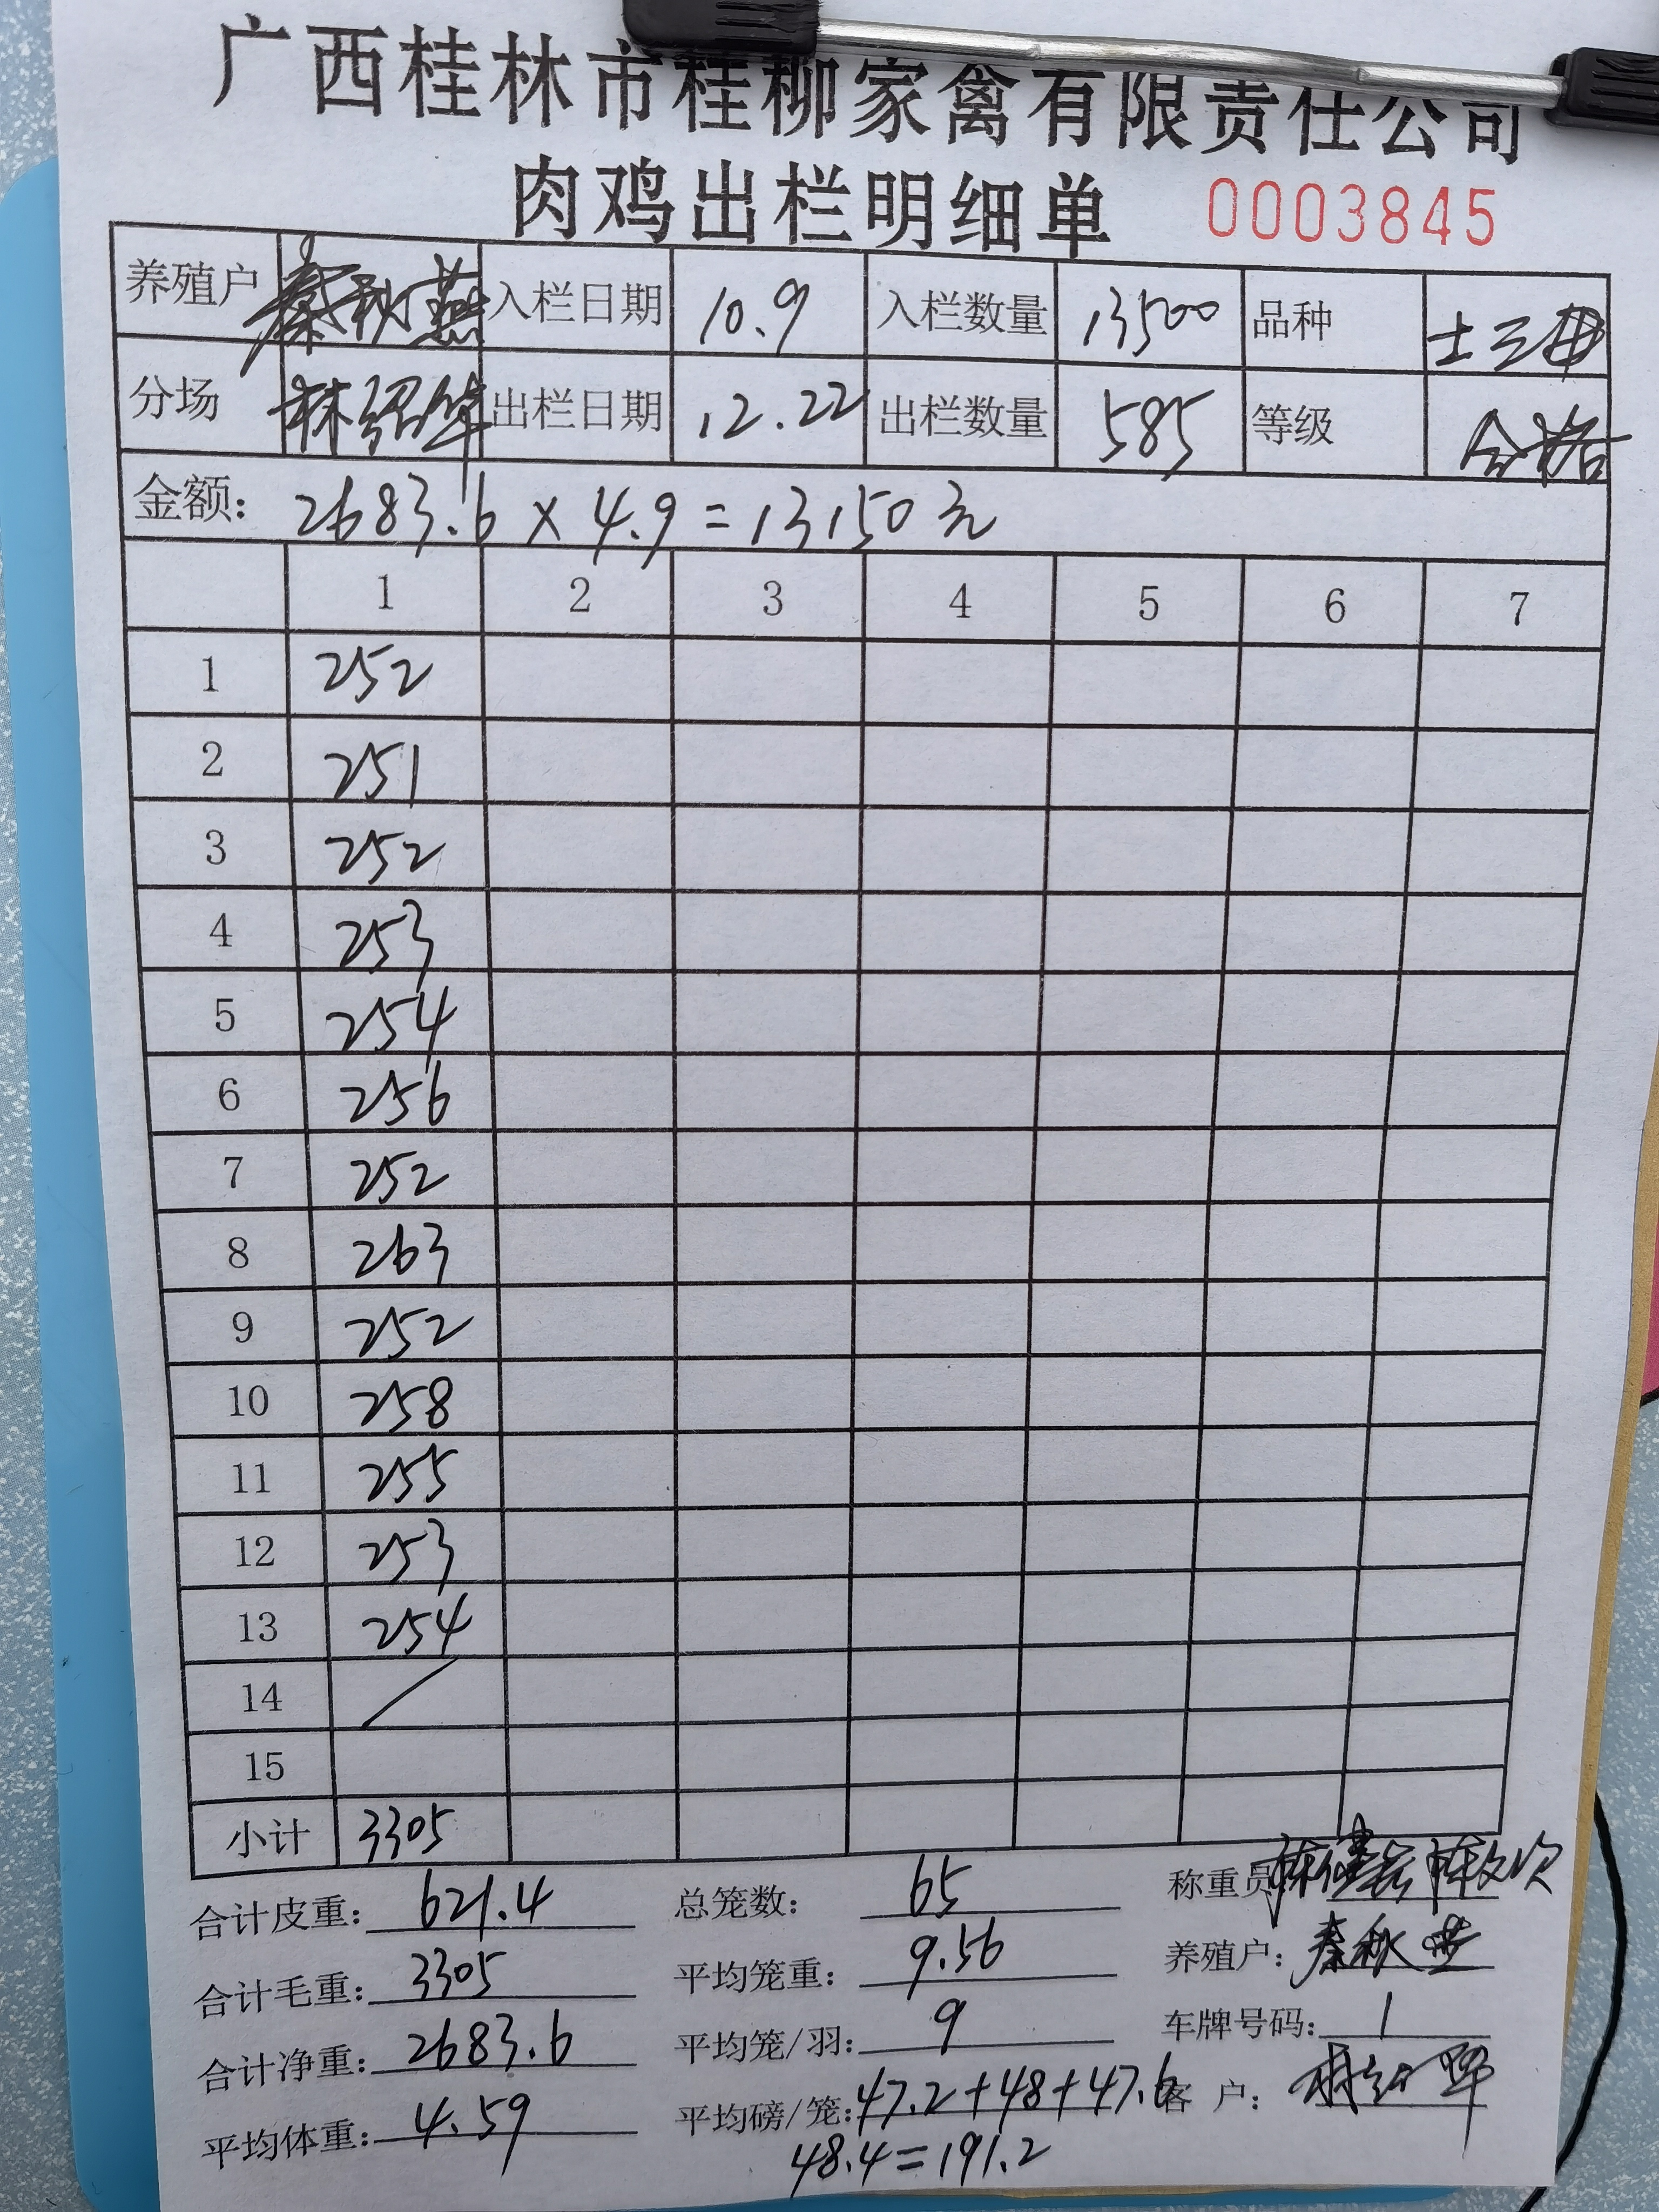 广西桂林市桂柳家禽有限责任公司
肉鸡出栏明细单 0003845
养殖户 秦秋燕 入栏日期 10.9 入栏数量 13500 品种 土三
分场 林绍华 出栏日期 12.22 出栏数量 585 等级 合格
金额: 2683.6 × 4.9 = 13150元
1 2 3 4 5 6 7
1 252
2 251
3 252
4 253
5 254
6 256
7 252
8 263
9 252
10 258
11 255
12 253
13 254
14 /
15
小计 3305
合计皮重: 621.4 总笼数: 65 称重员
合计毛重: 3305 平均笼重: 9.56 养殖户: 秦秋
合计净重: 2683.6 平均笼/羽: 9 车牌号码: 1
平均体重: 4.59 平均磅/笼: 47.2+48+47.6 客户:
48.4=191.2